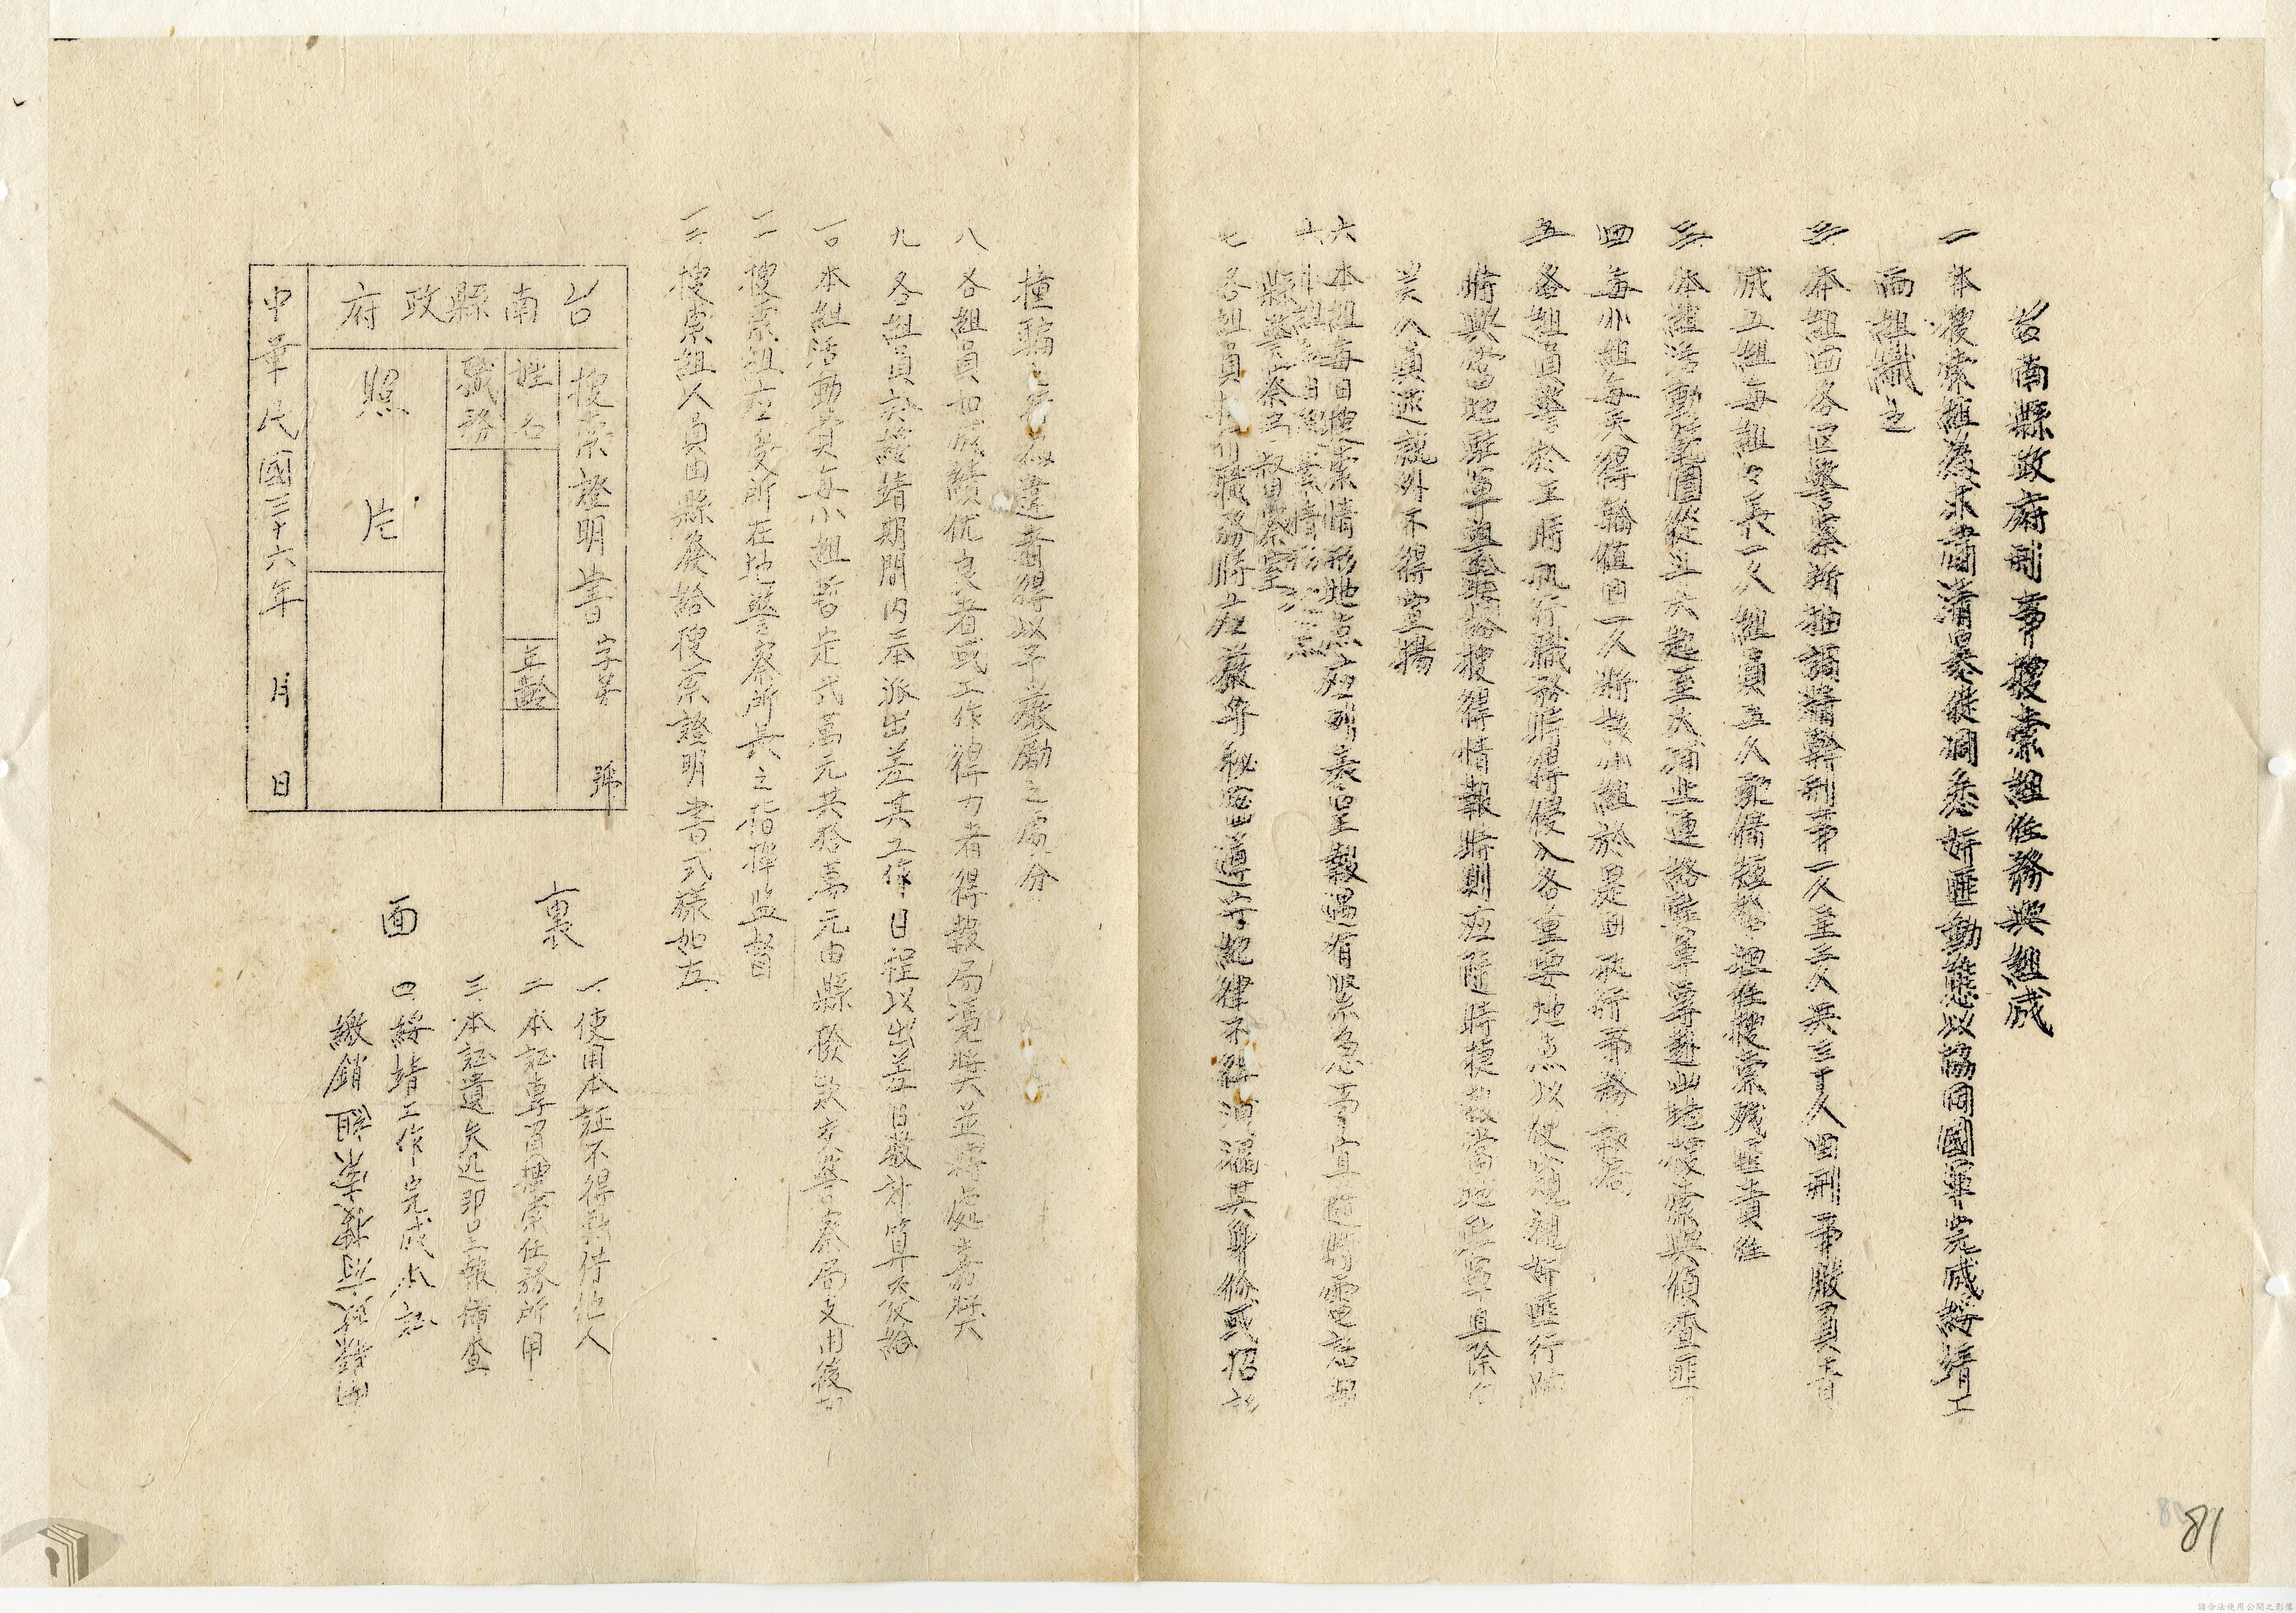 台南縣政府刑事搜索組任務與組成
一 本搜索組為求肅清暴徒洞悉奸匪動態以協同國軍完成綏靖工
而組織之
二 本組由各區警察所抽調精幹刑事一人至三人共三十人由刑事股員
成五組每組組長一人組員五人配備短槍担任搜索殘匪責任
三 本組活動範圍從斗六起至大埔止連絡駐軍專赴山地搜索與偵查匪
四 每小組每天得輪值日一人將該小組於是日執行事務報局
五 各組員警於工時執行職務時得侵入各重要地点以便窺視奸匪行跡
時與當地駐軍搜得情報時則應隨時提報當地駐軍直除
人員述說外不得宣揚
六 本組每日搜索情形地点應列表呈報遇有緊急事宜隨時電話報
縣警察局督察室
七 各組員執行職務時應嚴守秘密遵守紀律不得洩漏其身份或招
撞騙若有違者得以予嚴勵之處分
八 各組員如成績優良者或工作得力者得報局憑獎並得處嘉獎
九 各組員於綏靖期間內本派出差其工作日程以出差日數計算發給
一〇 本組活動費每小組暫定弍萬元共拾萬元由縣撥款交警察局支用後
一一 搜索組應受所在地警察所長之指揮監督
一二 搜索組人員由縣發給搜索證明書式樣如左
台南縣政府
搜索證明書 字第 號
姓名 年齡
職務
照片
中華民國三十六年 月 日
裏面
一、使用本証不得轉借他人
二、本証專賞搜索任務所用
三、本証遺失迅即呈報備查
四、綏靖工作完成本証
繳銷
81
請合法使用公開之影像